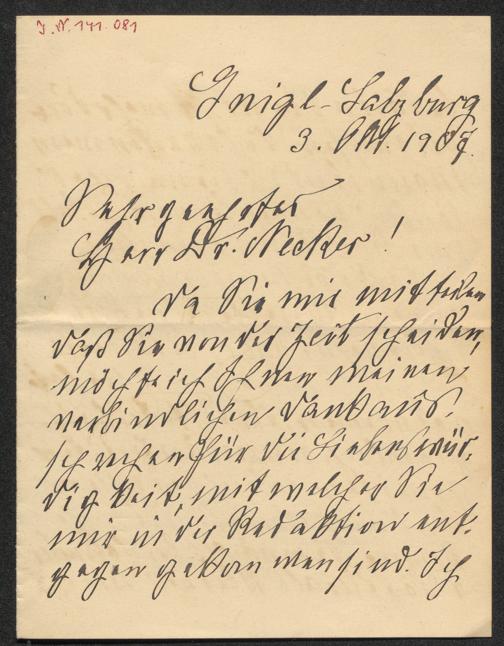 J. N. 141.081
Gnigl-Salzburg
3. Okt. 1907.
Sehr geehrter
Herr Dr. Necker!
Da Sie mir mitteilen
daß Sie von der Zeit scheiden,
möchte ich Ihnen meinen
verbindlichen Dank aus-
sprechen für die Liebenswür-
digkeit, mit welcher Sie
mir in der Redaktion ent-
gegen gekommen sind. Ich